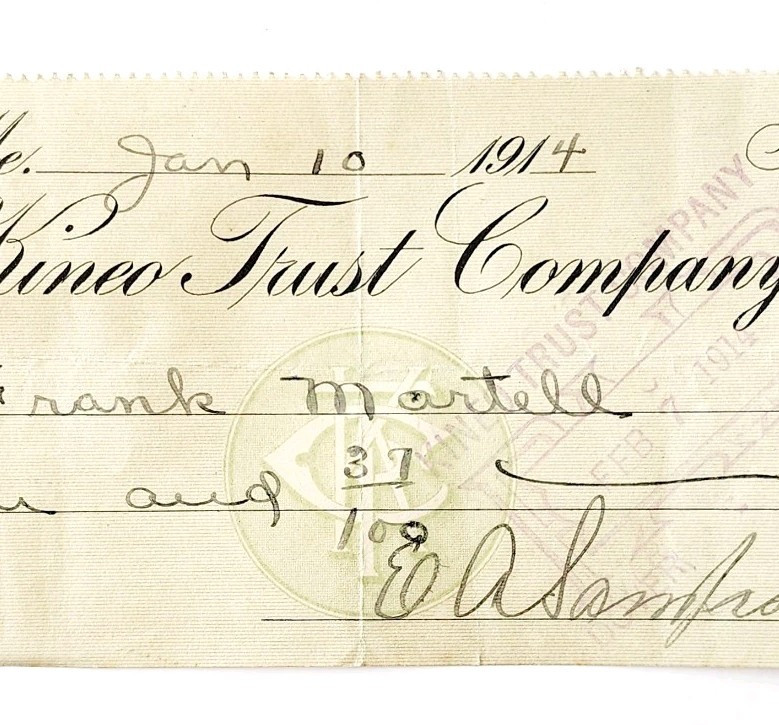 Me. Jan 10 1914
Kineo Trust Company
Frank Martell
and 37/100
E A Sampso
KINEO TRUST COMPANY
FEB 7 1914
DOVER